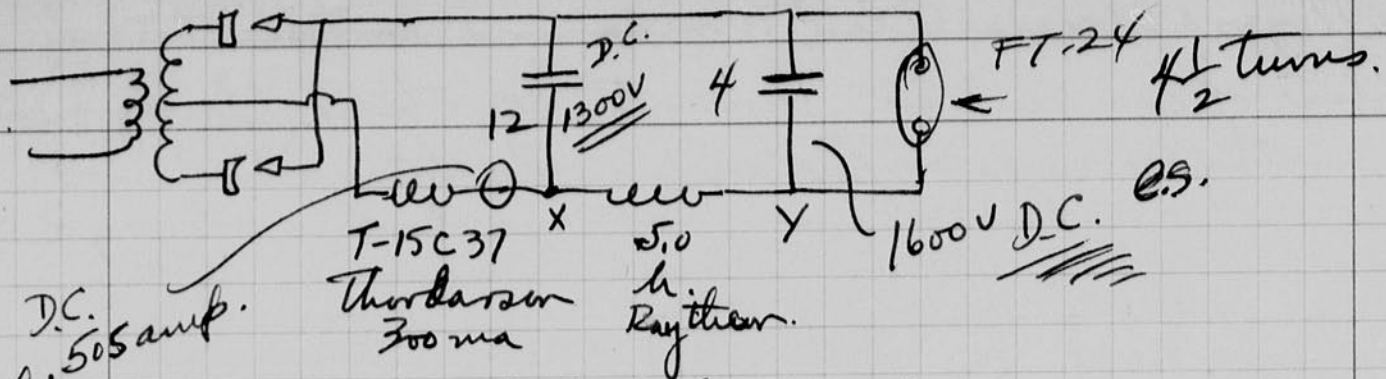 D.C.
12 1300V
4
FT-24 4 1/2 turns.
X
Y
1600V D.C. e.s.
T-15C37
Thordarson
300 ma
5.0
h.
Raytheon.
D.C.
.505 amp.